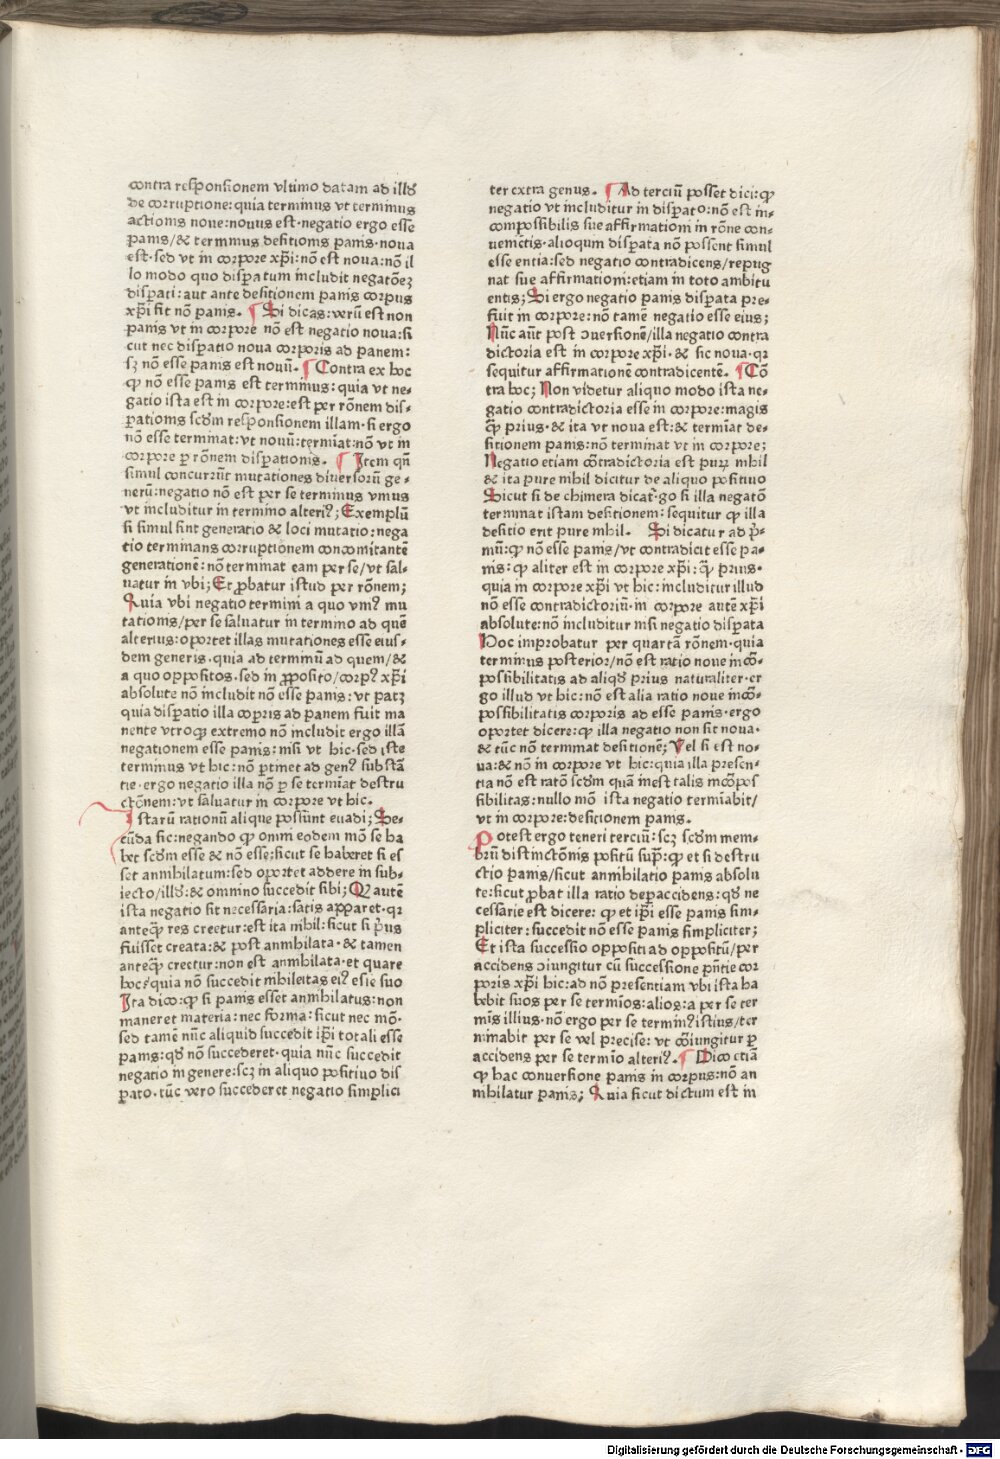 contra responsionem vltimo datam ad illð
de corruptione: quia terminus vt terminus
actionis noue: nouus est· negatio ergo esse
panis/& terminus desitionis panis· noua
est· sed vt in corpore xp̄i: nō est noua: nō il
lo modo quo disparatum includit negatōeȝ
disparati: aut ante desitionem panis corpus
xp̄i fit nō panis. ¶ Si dicas: verū est non
panis vt in corpore nō est negatio noua: si
cut nec disparatio noua corporis ad panem:
sȝ nō esse panis est nouū. ¶ Contra ex hoc
ꝙ nō esse panis est terminus: quia vt ne-
gatio ista est in corpore: est per rōnem dis-
parationis scd̄m responsionem illam· si ergo
nō esse terminat: vt nouū: termīat: nō vt in
corpore ꝑ rōnem disparationis. ¶ Item qn̄
simul concurrūt mutationes diuersorū ge-
nerū: negatio nō est per se terminus vnius
vt includitur in termino alteriꝰ; Exemplū
si simul sint generatio & loci mutatio: nega
tio terminans corruptionem concomitantē
generationē: nō terminat eam per se/vt sal-
uatur in vbi; Et ꝓbatur istud per rōnem;
Quia vbi negatio termini a quo vniꝰ mu
tationis/per se saluatur in termino ad quē
alterius: oportet illas mutationes esse eius-
dem generis· quia ad terminū ad quem/&
a quo oppositos· sed in ꝓposito/corpꝰ xp̄i
absolute nō includit nō esse panis: vt patȝ
quia disparatio illa corporis ad panem fuit ma
nente vtroqȝ extremo nō includit ergo illā
negationem esse panis: nisi vt hic· sed iste
terminus vt hic: nō ꝑtinet ad genꝰ substā
tie· ergo negatio illa nō ꝑ se termīat destru
ctōnem: vt saluatur in corpore vt hic.
Istarū rationū alique possunt euadi; Se-
cūda sic: negando ꝙ omni eodem mō se ha
bet scd̄m esse & nō esse: sicut se haberet si es
set annihilatum: sed oportet addere in sub-
iecto/illð: & omnino succedit sibi; Qꝫ autē
ista negatio sit necessaria: satis apparet· qꝛ
anteqȝ res creetur: est ita nihil: sicut si pͥus
fuisset creata: & post annihilata· & tamen
anteqȝ creetur: non est annihilata· et quare
hoc? quia nō succedit nihileitas eiꝰ esse suo
Ita dico: ꝙ si panis esset annihilatus: non
maneret materia: nec forma: sicut nec mō·
sed tamē nūc aliquid succedit ip̄i totali esse
panis: qð nō succederet· quia nūc succedit
negatio in genere: scȝ in aliquo positiuo dis
parato· tūc vero succederet negatio simplici
ter extra genus. ¶ Ad terciū posset dici: ꝙ
negatio vt includitur in disparato: nō est in-
compossibilis sue affirmationi in rōne con-
uenientis· alioquin disparata nō possent simul
esse entia: sed negatio contradicens/repug
nat sue affirmationi: etiam in toto ambitu
entis; Si ergo negatio panis disparata pre-
fuit in corpore: nō tamē negatio esse eius;
Nūc aūt post ↄuersionē/illa negatio contra
dictoria est in corpore xp̄i· & sic noua· qꝛ
sequitur affirmationē contradicentē. ¶ Cō
tra hoc; Non videtur aliquo modo ista ne-
gatio contradictoria esse in corpore: magis
qȝ prius· & ita vt noua est: & termīat de-
sitionem panis: nō terminat vt in corpore;
Negatio etiam cōtradictoria est puꝝ nihil
& ita pure nihil dicitur de aliquo positiuo
Sicut si de chimera dicatͬ· go si illa negatō
terminat istam desitionem: sequitur ꝙ illa
desitio erit pure nihil. Si dicatur ad pͥ-
mū: ꝙ nō esse panis/vt contradicit esse pa-
nis: ꝙ aliter est in corpore xp̄i: qȝ prius·
quia in corpore xp̄i vt hic: includitur illud
nō esse contradictoriū· in corpore autē xp̄i
absolute: nō includitur nisi negatio disparata
Hoc improbatur per quartā rōnem· quia
terminus posterior/nō est ratio noue incō-
possibilitatis ad aliqð prius naturaliter· er
go illud vt hic: nō est alia ratio noue incō-
possibilitatis corporis ad esse panis· ergo
oportet dicere: ꝙ illa negatio non sit noua·
& tūc nō terminat desitionē; Vel si est no-
ua: & nō in corpore vt hic: quia illa presen-
tia nō est ratō scd̄m quā inest talis incōpos
sibilitas: nullo mō ista negatio termīabit/
vt in corpore: desitionem panis.
Potest ergo teneri terciū: scȝ scd̄m mem-
brū distinctōnis positū supͣ: ꝙ et si destru
ctio panis/sicut annihilatio panis absolu
te: sicut ꝓbat illa ratio deꝑaccidens: qð ne
cessarie est dicere: ꝙ et ip̄i esse panis sim-
pliciter: succedit nō esse panis simpliciter;
Et ista successio oppositi ad oppositū/per
accidens ↄiungitur cū successione pn̄tie cor
poris xp̄i hic: ad nō presentiam vbi ista ha
bebit suos per se termīos: alios: a per se ter
mīs illius· nō ergo per se terminꝰ istius/ter
minabit per se vel precise: vt cōiungitur ꝑ
accidens per se termīo alteriꝰ. ¶ Dico etiā
ꝙ hac conuersione panis in corpus: nō an
nihilatur panis; Quia sicut dictum est in
Digitalisierung gefördert durch die Deutsche Forschungsgemeinschaft - DFG